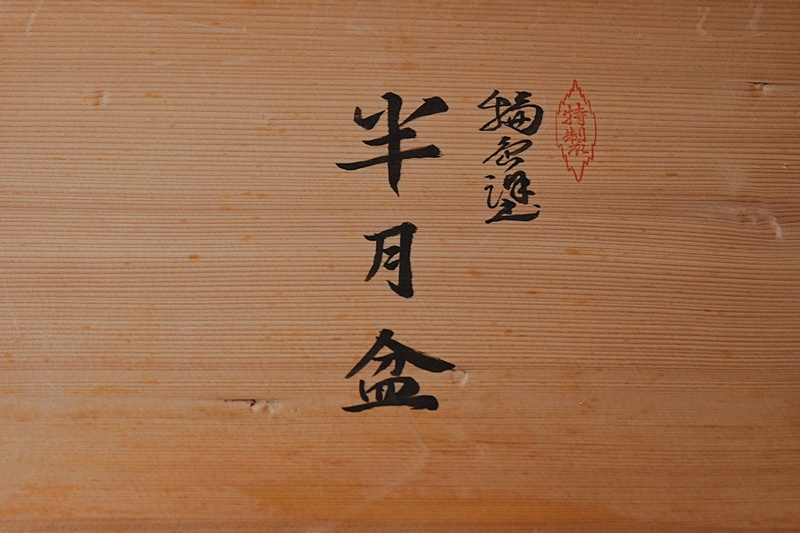 特製
輪島塗
半月盆